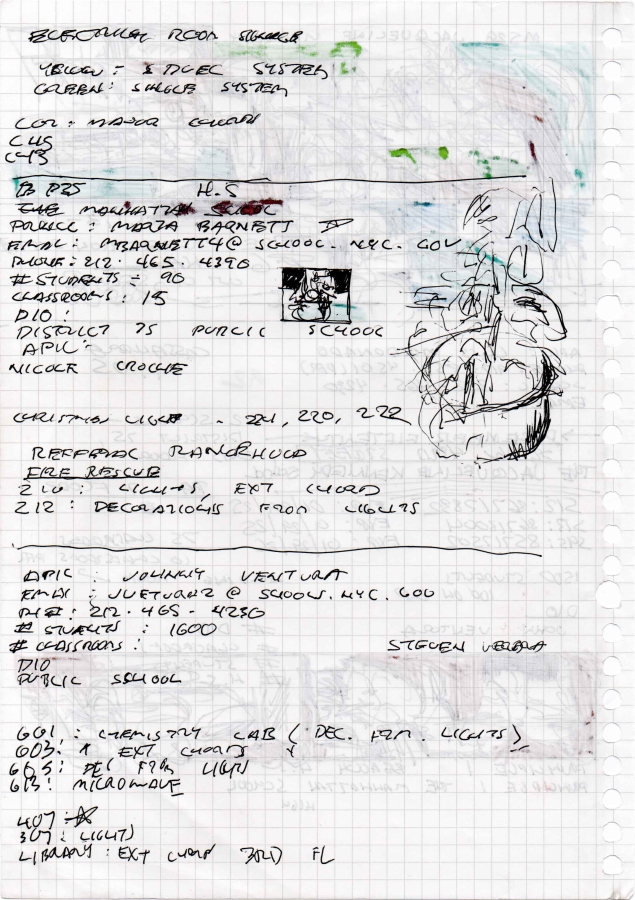 ELECTRICAL ROOM SIGNAGE
YELLOW : SYSTEM
GREEN : SINGLE SYSTEM
COR : MAJOR CHORDS
P35 H.S
THE MANHATTAN SCHOOL
MARIA BARNETT
EMAIL : MBARNETT4@ SCHOOL. NYC. GOV
PHONE: 212. 465. 4390
# STUDENTS = 90
CLASSROOMS : 15
DIO :
DISTRICT 75 PUBLIC SCHOOL
APIC -
NICOLE
CHRISTMAS LIGHT - 221, 220, 222
FIRE RESCUE
210 : LIGHTS, EXT CHORD
212 : DECORATIONS FROM LIGHTS
APIC : JOHNNY VENTURA
EMAIL : JVETURA2 @ SCHOOLS. NYC. GOV
PH# : 212. 465 - 4230
# STUENTS : 1600
# CLASSROOMS : STEVEN
DIO
PUBLIC SSHOOL
601 : CHEMISTRY LAB ( DEC. FRM. LIGHTS )
603: EXT CHORDS
605 : DEC FROM LIGHTS
613 : MICROWAVE
407
307 : LIGHTS
LIBRARY : EXT CHORD 3RD FL